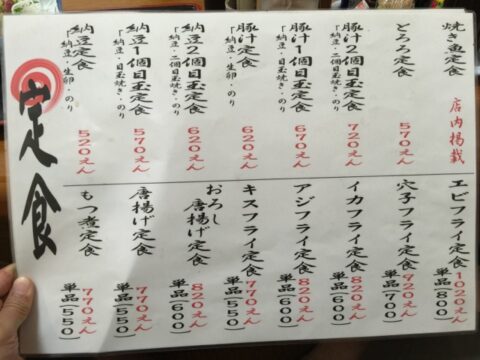 定食
焼き魚定食 店内掲載
とろろ定食 570えん
豚汁2個目玉定食 720えん
「納豆・二個目玉焼き・のり
豚汁1個目玉定食 670えん
「納豆・目玉焼き・のり
豚汁定食 620えん
「納豆・生卵・のり
納豆2個目玉定食 620えん
「納豆・二個目玉焼き・のり
納豆1個目玉定食 570えん
「納豆・目玉焼き・のり
納豆定食 520えん
「納豆・生卵・のり
エビフライ定食 1020えん
単品(800)
穴子フライ定食 720えん
単品(700)
イカフライ定食 820えん
単品(600)
アジフライ定食 820えん
単品(600)
キスフライ定食 770えん
単品(550)
おろし唐揚げ定食 820えん
単品(600)
唐揚げ定食 770えん
単品(550)
もつ煮定食 770えん
単品(550)